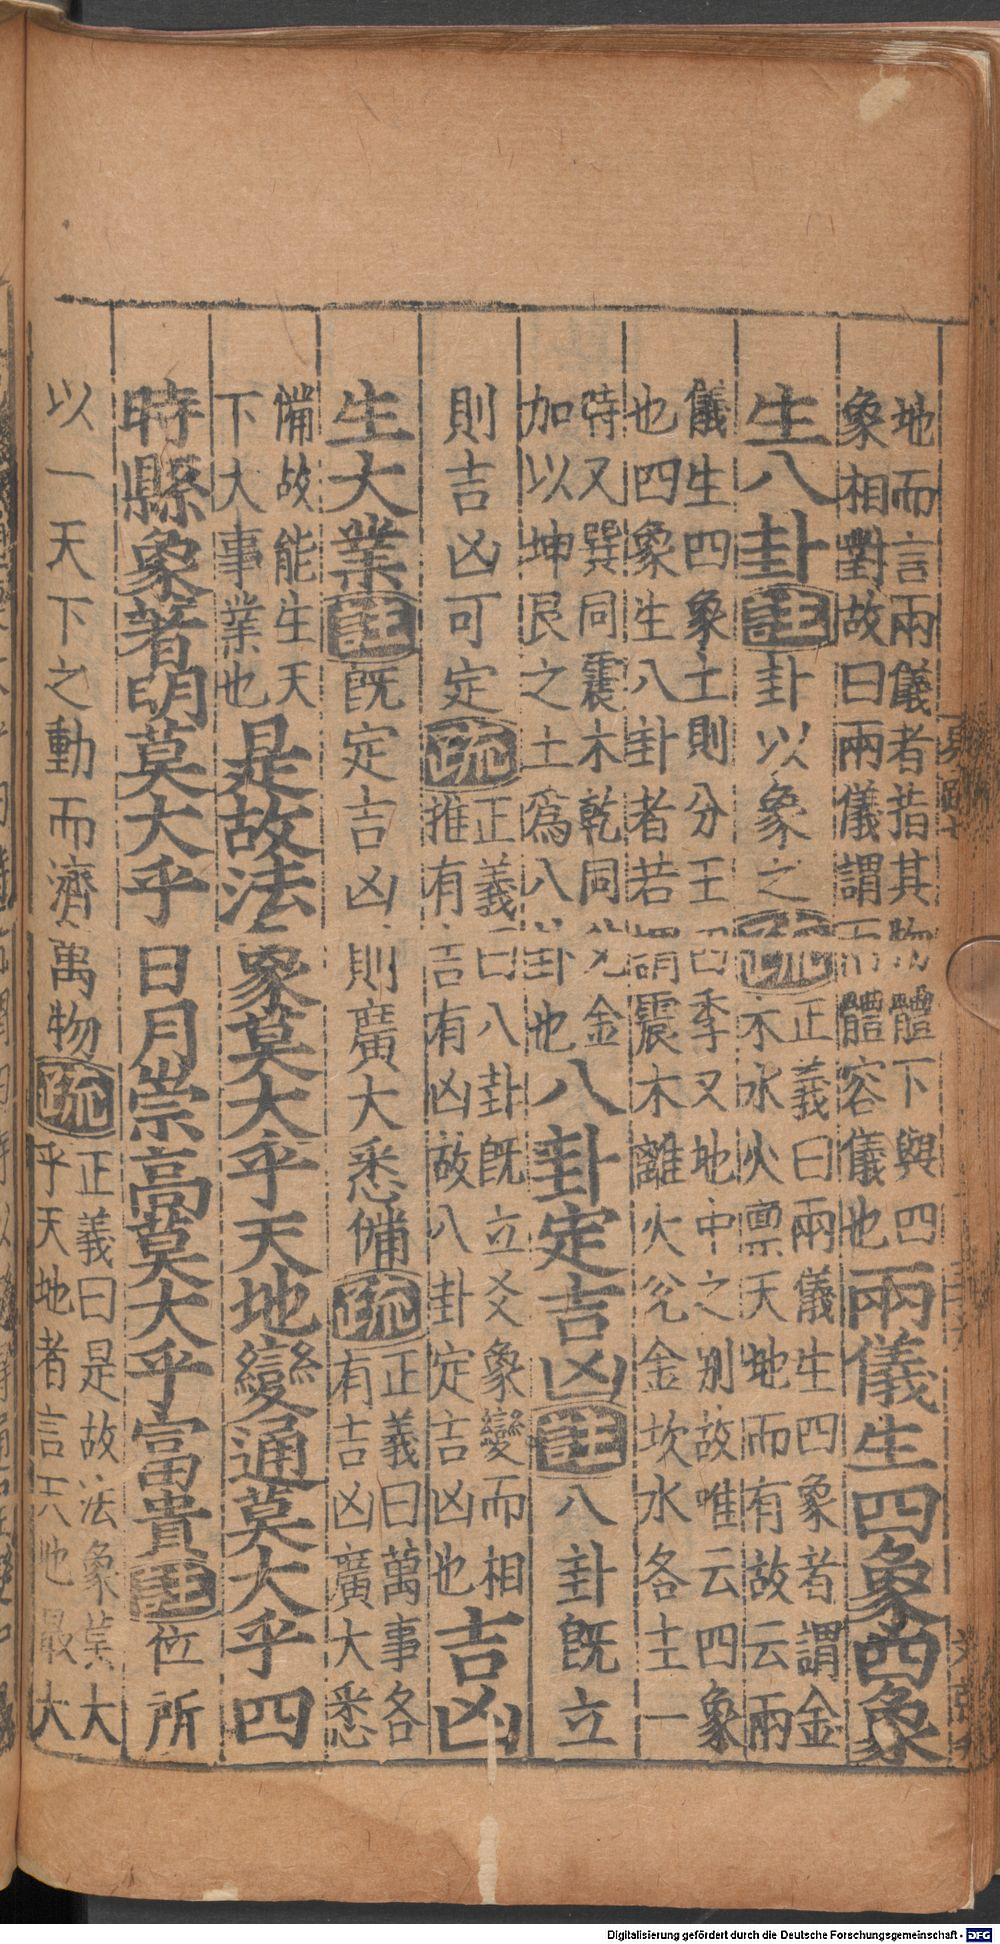 地而言兩儀者指其物體下與四
象相對故曰兩儀謂兩體容儀也兩儀生四象四象
生八卦註卦以象之疏正義曰兩儀生四象者謂金
木水火禀天地而有故云兩
儀生四象土則分王四季又地中之別故唯云四象
也四象生八卦者若謂震木離火兌金坎水各主一
時又巽同震木乾同兌金
加以坤艮之土為八卦也八卦定吉凶註八卦既立
則吉凶可定疏正義曰八卦既立爻象變而相
推有吉有凶故八卦定吉凶也吉凶
生大業註既定吉凶則廣大悉備疏正義曰萬事各
有吉凶廣大悉
備故能生天
下大事業也是故法象莫大乎天地變通莫大乎四
時縣象著明莫大乎日月崇高莫大乎富貴註位所
以一天下之動而濟萬物疏正義曰是故法象莫大
乎天地者言天地最大
Digitalisierung gefördert durch die Deutsche Forschungsgemeinschaft - DFG